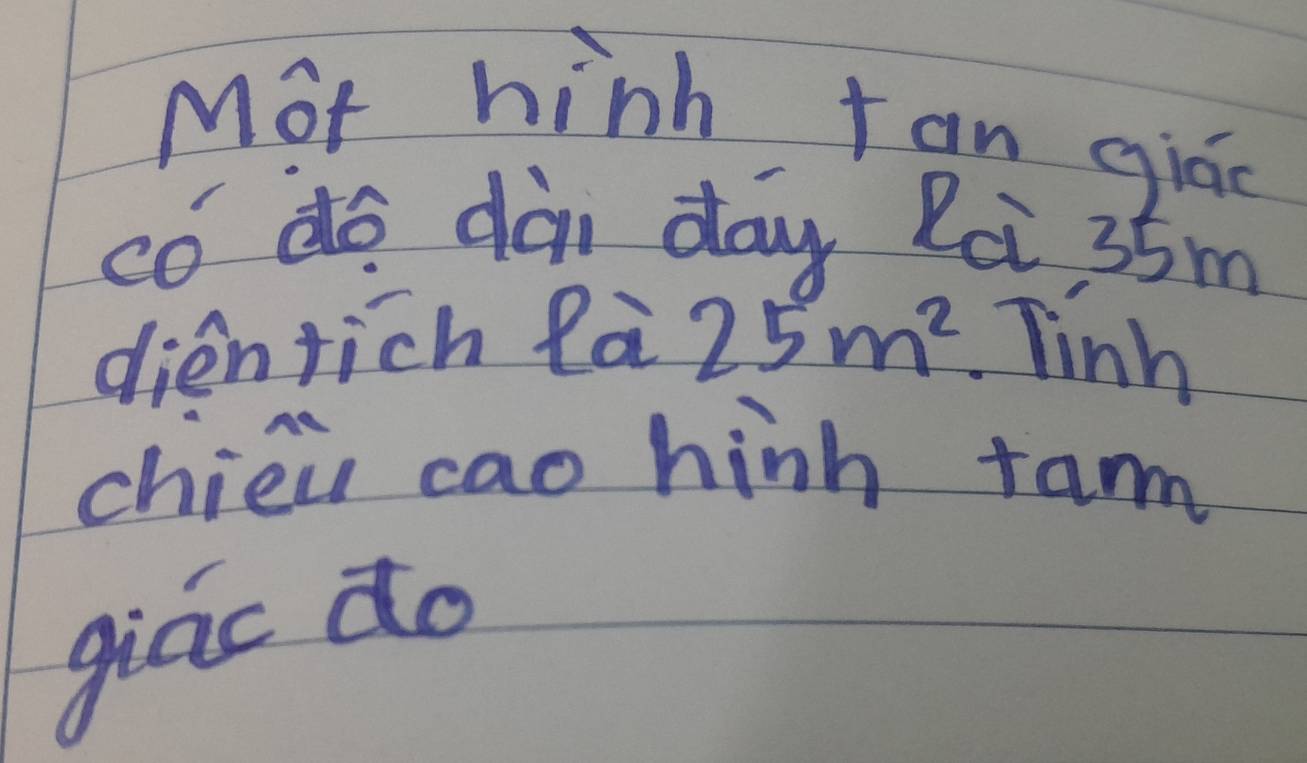 Một hình tan giác
có độ dài đáy là 35m
diện tích là 25m². Tính
chiều cao hình tam
giác đo